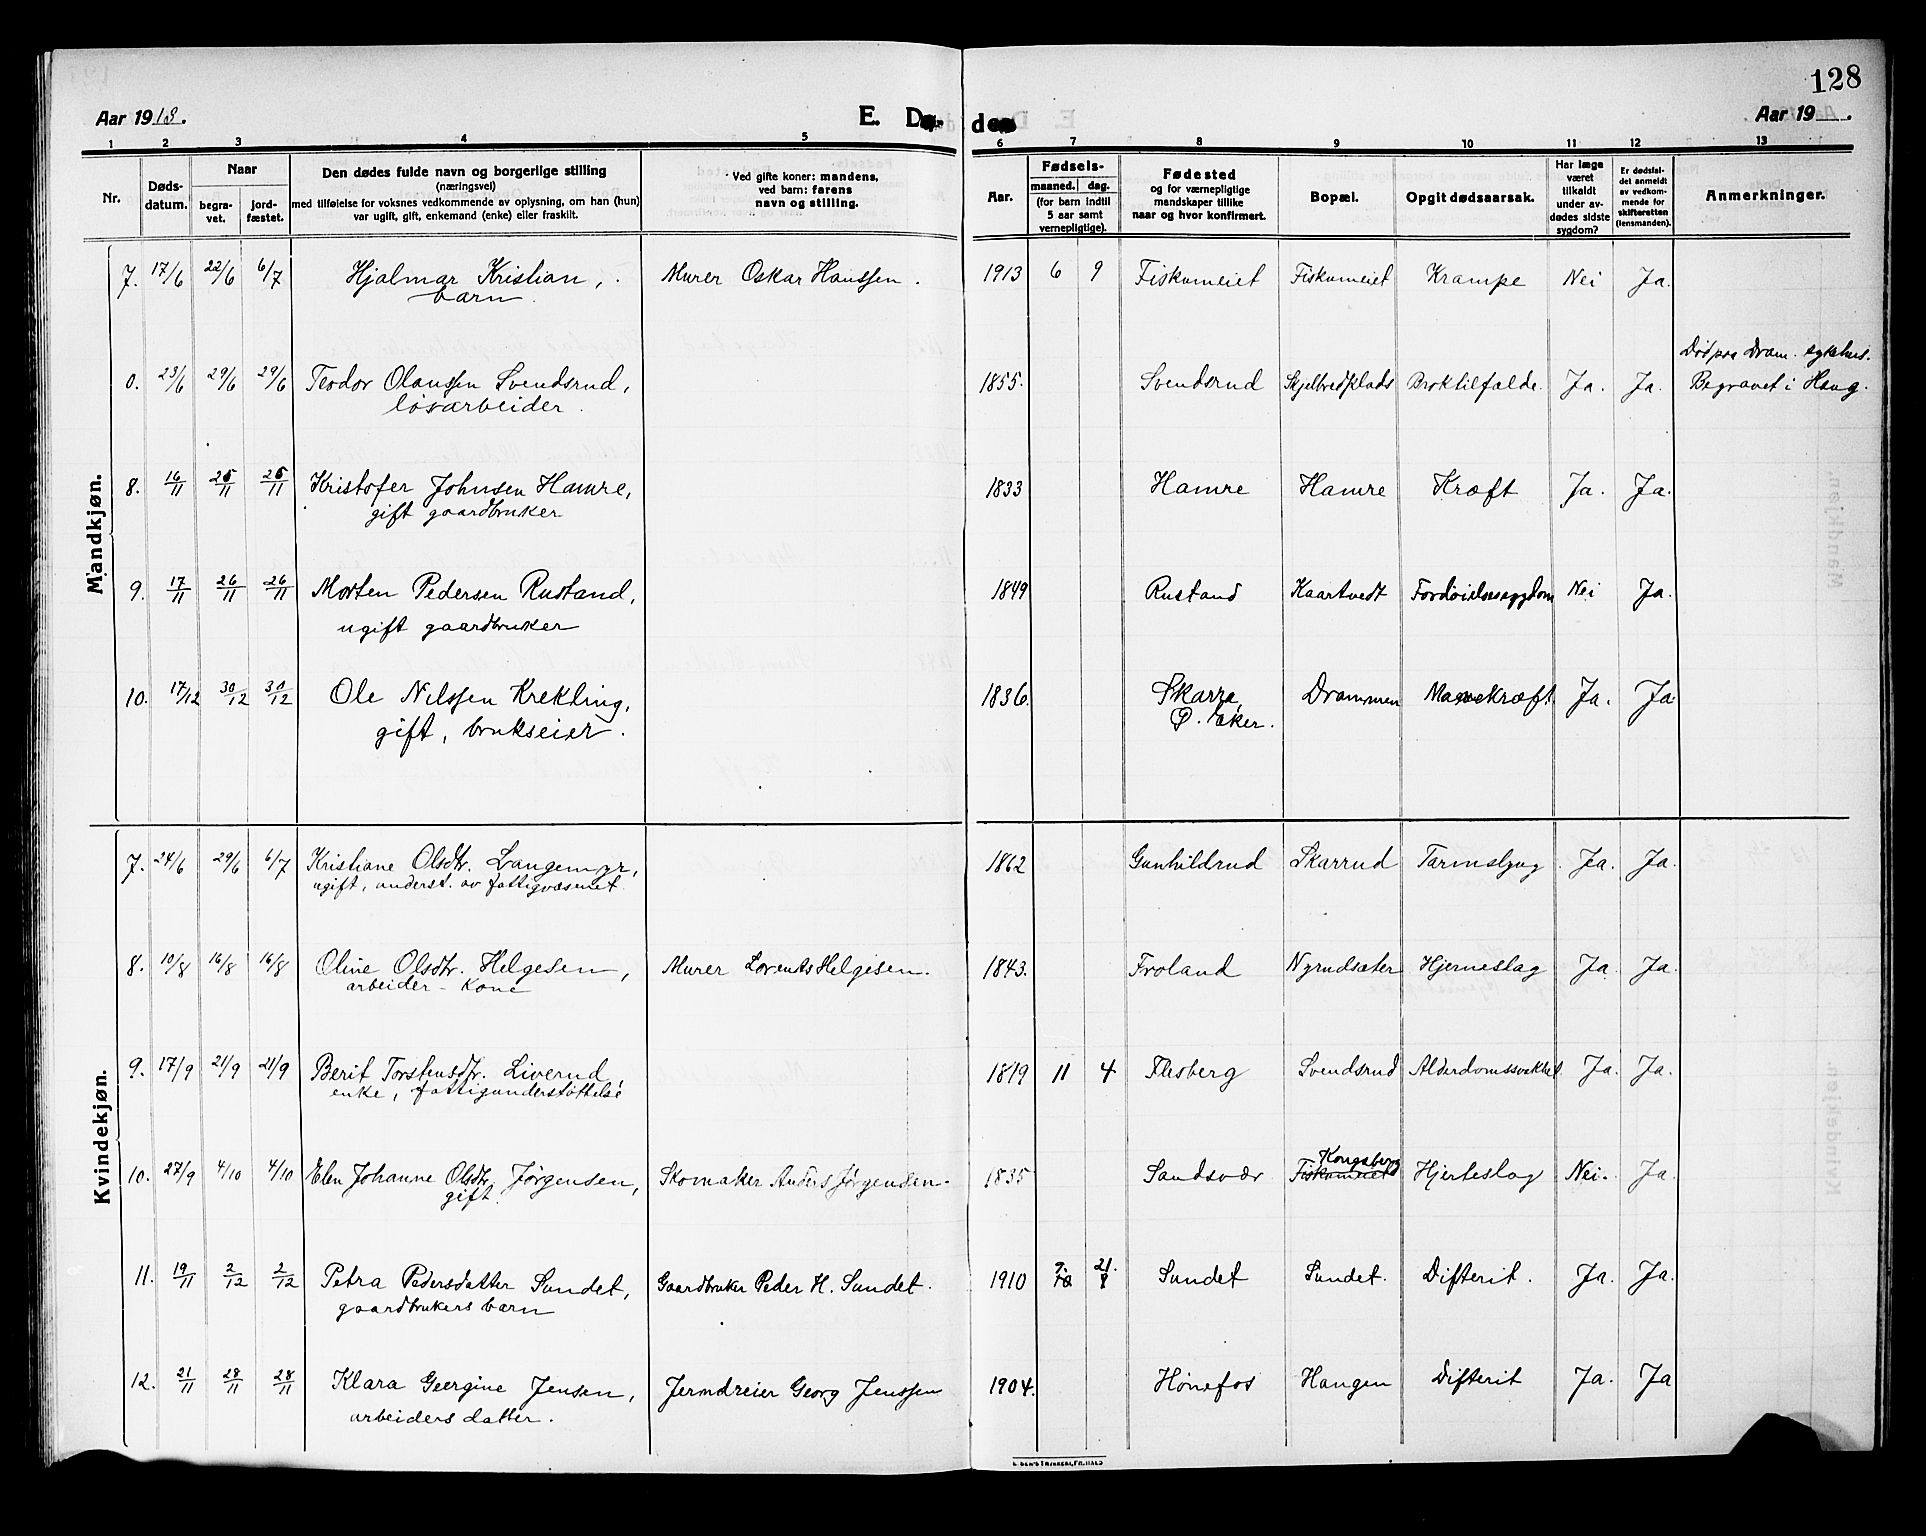 128
Aar 1913.
E. Dø de
Aar 19 .
1 2 3 4 5 6 7 8 9 10 11 12 13
Nr.
Døds-
datum.
Naar
begra-
vet.
jord-
fæstet.
Den dødes fulde navn og borgerlige stilling
(næringsvei)
med tilføielse for voksnes vedkommende av oplysning, om han (hun)
var ugift, gift, enkemand (enke) eller fraskilt.
Ved gifte koner: mandens,
ved barn: farens
navn og stilling.
Aar.
Fødsels-
maaned. dag.
(for barn indtil
5 aar samt
vernepligtige).
Fødested
og for værnepligtige
mandskaper tillike
naar og hvor konfirmert.
Bopæl.
Opgit dødsaarsak.
Har læge
været
tilkaldt
under av-
dødes sidste
sygdom?
Er dødsfal-
det anmeldt
av vedkom-
mende for
skifteretten
(lensmanden).
Anmerkninger.
Mandkjøn.
7. 17/6 22/6 6/7 Hjalmar Kristian, Murer Oskar Hanssen. 1913 6 9 Fiskumeiet Fiskumeiet Krampe Nei Ja.
barn.
Død paa Dram. sykehus.
0. 23/6 29/6 29/6 Teodor Olaussen Svendsrud, 1855. Svendsrud Skjelbredplads Broktilfælde. Ja. Ja. Begravet i Haug.
løsarbeider.
8. 16/11 25/11 25/11 Kristofer Johnsen Hamre, 1833 Hamre Hamre Kræft Ja. Ja.
gift gaardbruker
9. 17/11 26/11 26/11 Morten Pedersen Rustand, 1849 Rustand Kaartvedt Fordøielsessygdom Nei Ja.
ugift gaardbruker
10. 17/12 30/12 30/12 Ole Nilssen Krekling, 1836. Skarra, Drammen Mavekræft. Ja. Ja
gift, brukseier. P. Eker.
Kvindekjøn.
7. 24/6 29/6 6/7 Kristiane Olsdtr. Langemyr, 1862 Gunhildrud Skarrud Tarmslyng Ja. Ja.
ugift, underst. av fattigvæsenet.
8. 10/8 16/8 16/8 Oline Olsdtr. Helgesen, Murer Lorents Helgesen. 1843. Froland Nyrudsæter Hjerneslag Ja. Ja.
arbeider-kone
9. 17/9 21/9 21/9 Berit Torstensdtr. Liverud 1819 11 4 Flesberg Svendsrud Alderdomssvakhet Ja. Ja.
enke, fattigunderstøttelse
Kongsberg
10. 27/9 4/10 4/10 Elen Johanne Olsdtr. Jørgensen, Skomaker Anders Jørgensen. 1835 Sandsvær Fiskumeiet Hjerteslag Nei. Ja.
gift.
11. 19/11 2/12 2/12 Petra Pedersdatter Sundet, Gaardbruker Peder H. Sundet. 1910 7. 21. Sundet Sundet. Difterit. Ja. Ja.
gaardbrukers barn
12. 21/11 28/11 28/11 Klara Georgine Jensen, Jermdreier Georg Jenssen 1904. Hønefos Haugen Difterit Ja. Ja
arbeiders datter.